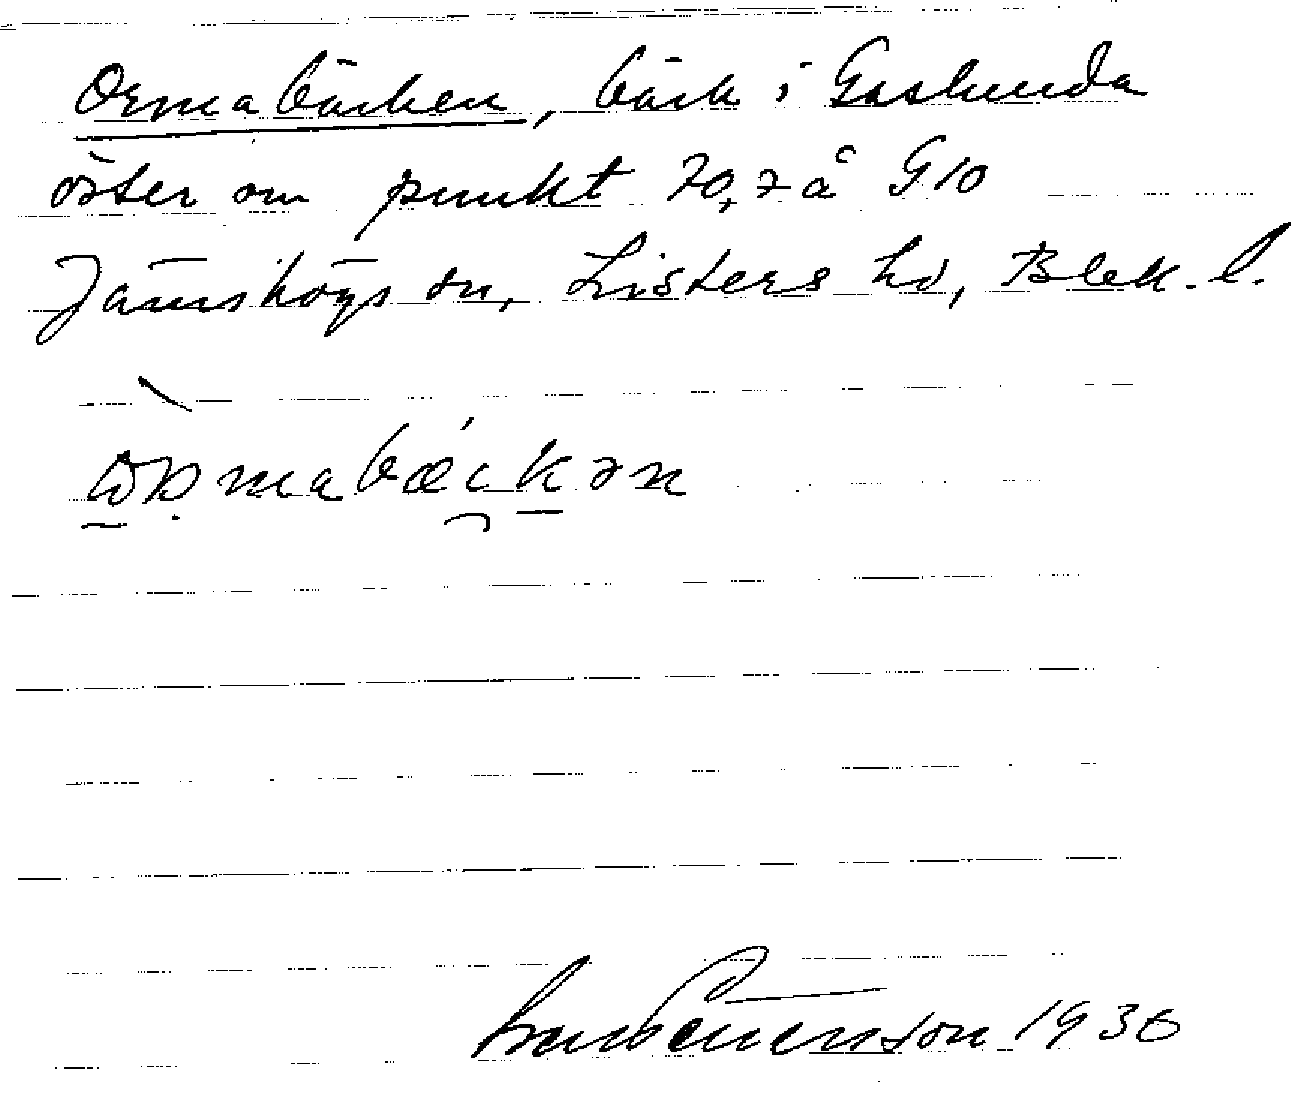 Ormabäcken, bäck i Gaslunda
öster om punkt 70,7 å G10
Jämshögs sn, Listers hd, Blek. l.
1936